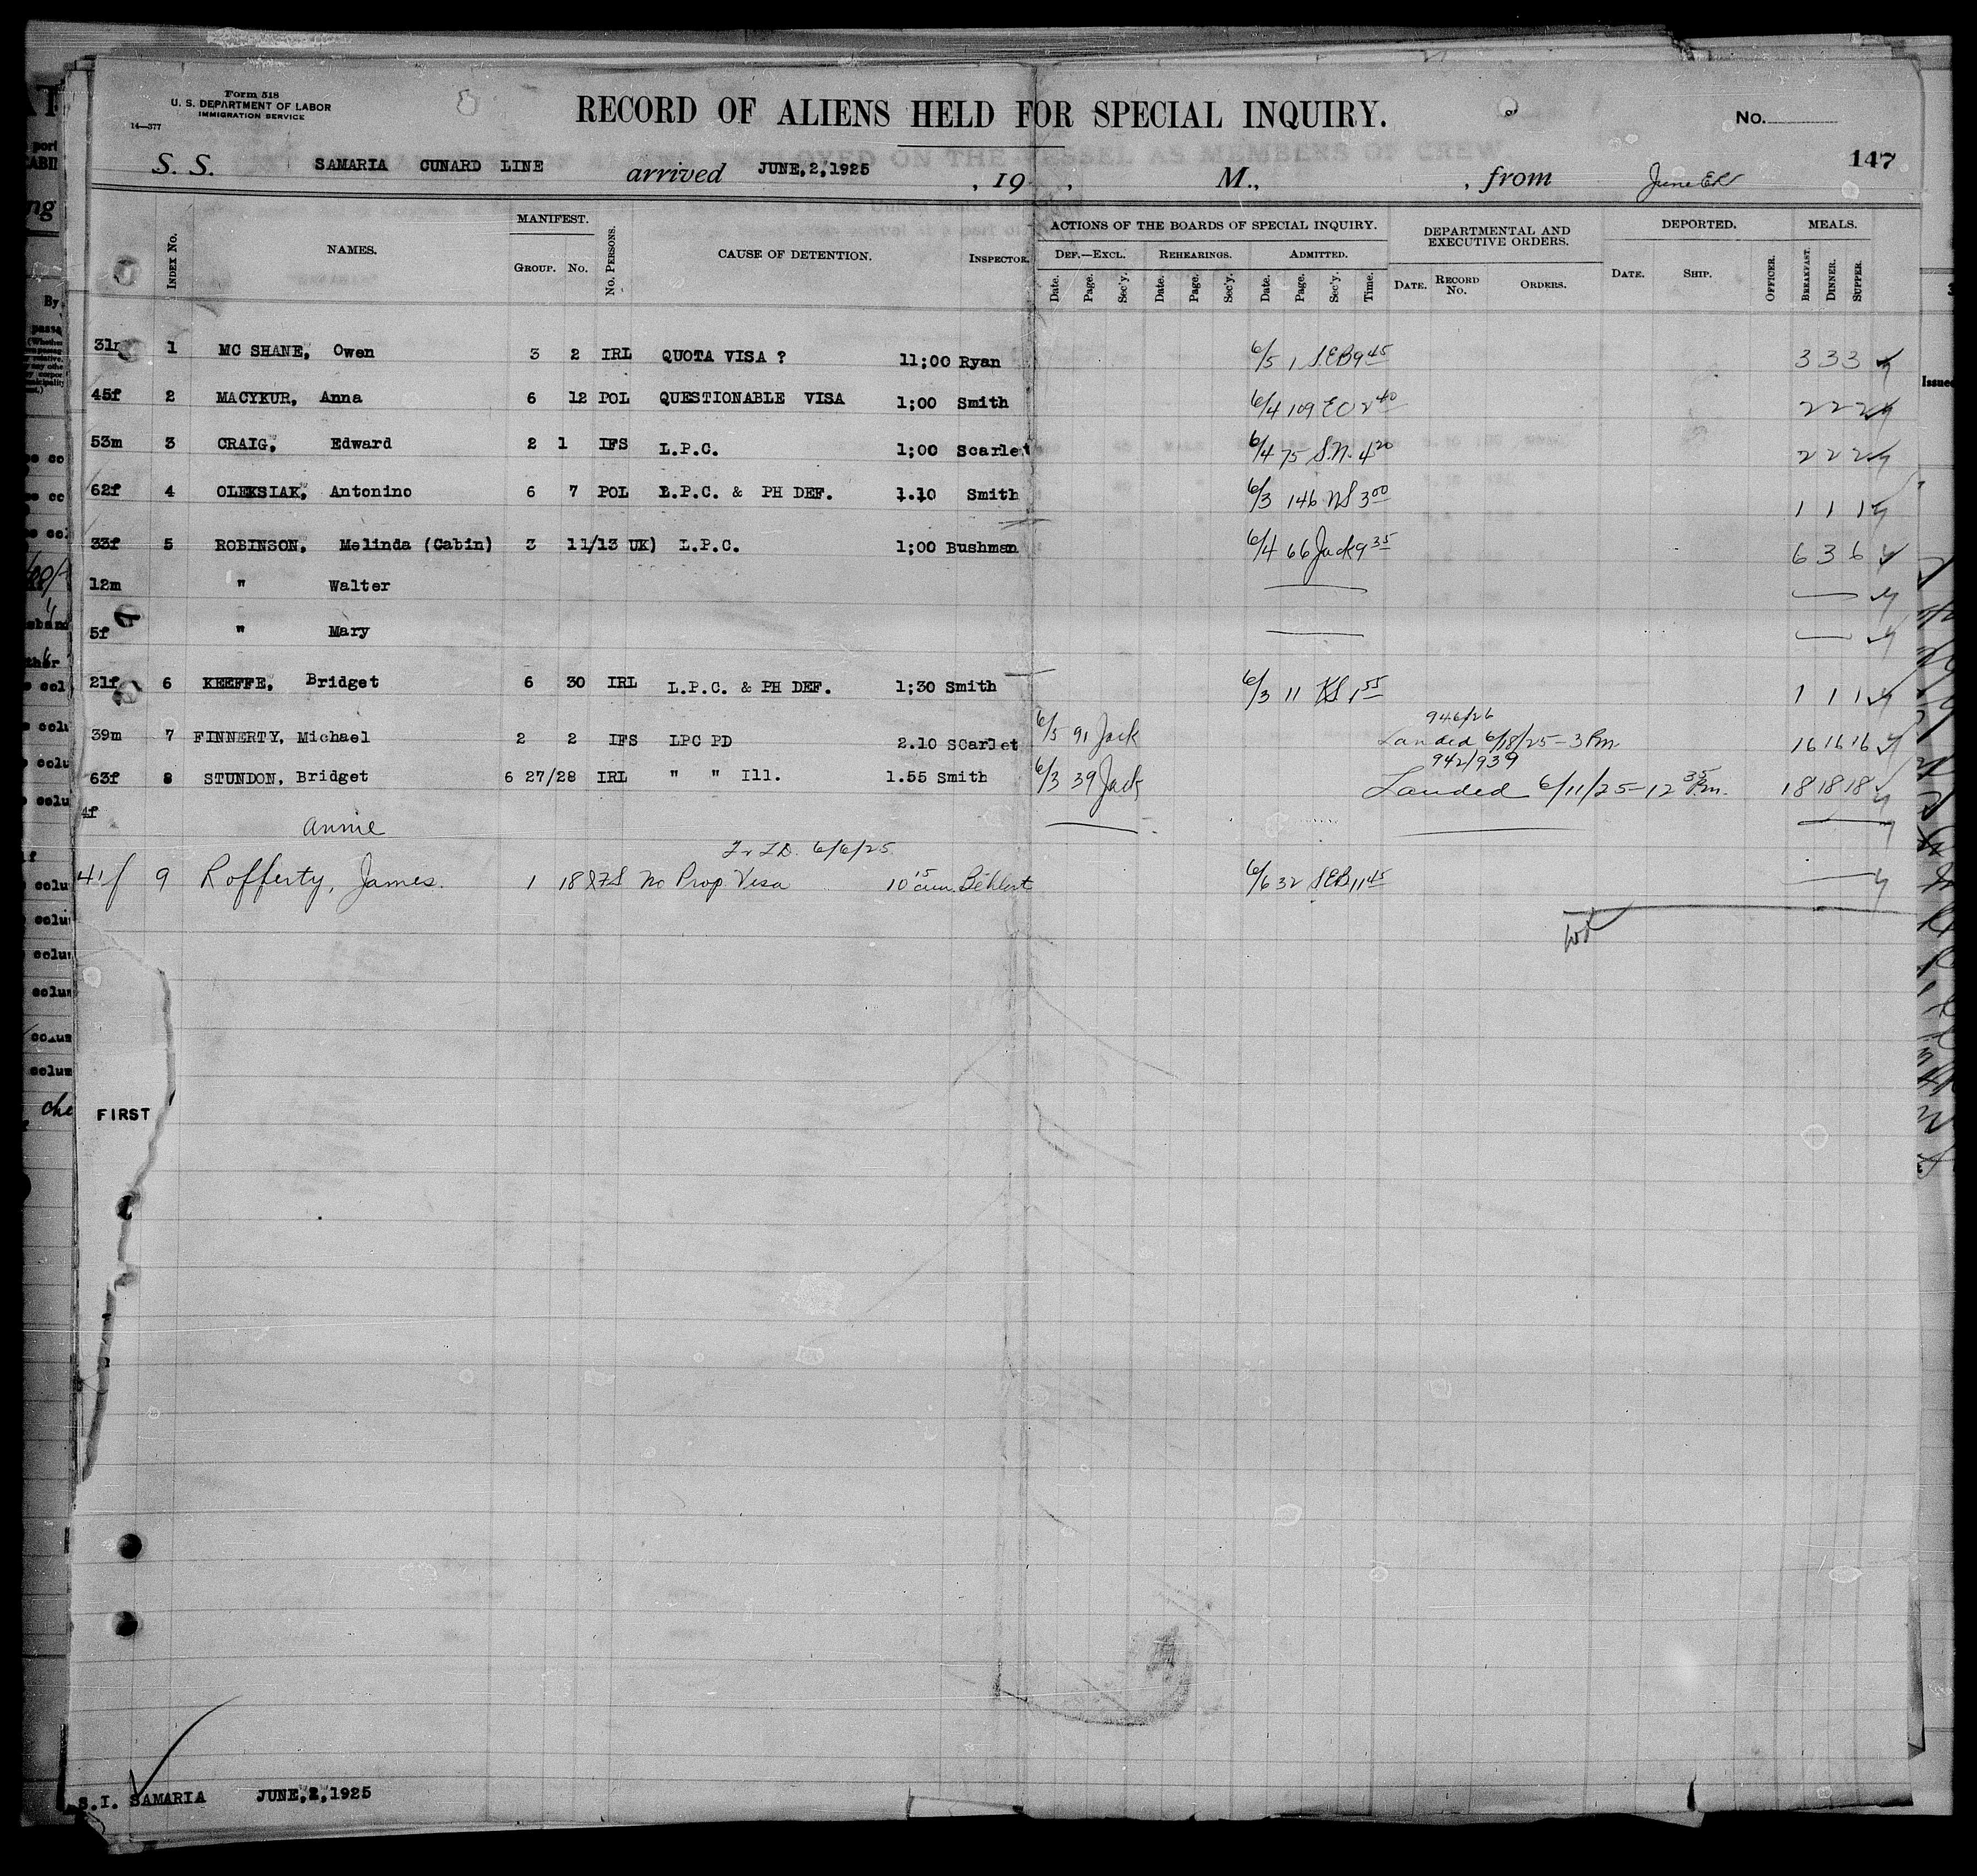 Form 518
U. S. DEPARTMENT OF LABOR
IMMIGRATION SERVICE
14—377
RECORD OF ALIENS HELD FOR SPECIAL INQUIRY.
No.
147
S. S. SAMARIA CUNARD LINE arrived JUNE,2,1925 , 19 , M., , from
INDEX No. NAMES. MANIFEST. GROUP. No. No. PERSONS. CAUSE OF DETENTION. INSPECTOR. ACTIONS OF THE BOARDS OF SPECIAL INQUIRY. DEPARTMENTAL AND EXECUTIVE ORDERS. DEPORTED. MEALS.
DEF.—EXCL. REHEARINGS. ADMITTED.
Date. Page. Sec'y. Date. Page. Sec'y. Date. Page. Sec'y. Time. DATE. RECORD No. ORDERS. DATE. SHIP. OFFICER. BREAKFAST. DINNER. SUPPER.
31m 1 MC SHANE, Owen 3 2 IRL QUOTA VISA ? 11;00 Ryan 6/5 1 S.E.B 9 45 3 3 3
45f 2 MACYKUR, Anna 6 12 POL QUESTIONABLE VISA 1;00 Smith 6/4 109 EO 2 40 2 2 2
53m 3 CRAIG, Edward 2 1 IFS L.P.C. 1;00 Scarlet 6/4 75 S.N. 4 20 2 2 2
62f 4 OLEKSIAK, Antonino 6 7 POL L.P.C. & PH DEF. 1.10 Smith 6/3 146 NS 3 00 1 1 1
33f 5 ROBINSON, Melinda (Cabin) 3 11/13 UK) L.P.C. 1;00 Bushman 6/4 66 Jack 9 35 6 3 6
12m " Walter
5f " Mary
21f 6 KEEFFE, Bridget 6 30 IRL L.P.C. & PH DEF. 1;30 Smith 6/3 11 KS 1 55 1 1 1
946/26
39m 7 FINNERTY, Michael 2 2 IFS LPC PD 2.10 SCarlet 6/5 91 Jack Landed 6/18/25 - 3 Pm 16 16 16
942/939
63f 8 STUNDON, Bridget 6 27/28 IRL " " Ill. 1.55 Smith 6/3 39 Jack Landed 6/11/25 - 12 35 Pm. 18 18 18
4f
Annie
6/6/25
41f 9 Rofferty, James. 1 18 IFS No Prop Visa 10 15 am. Behlert 6/6 32 S.E.B 11 45
FIRST
S.I. SAMARIA JUNE,2,1925